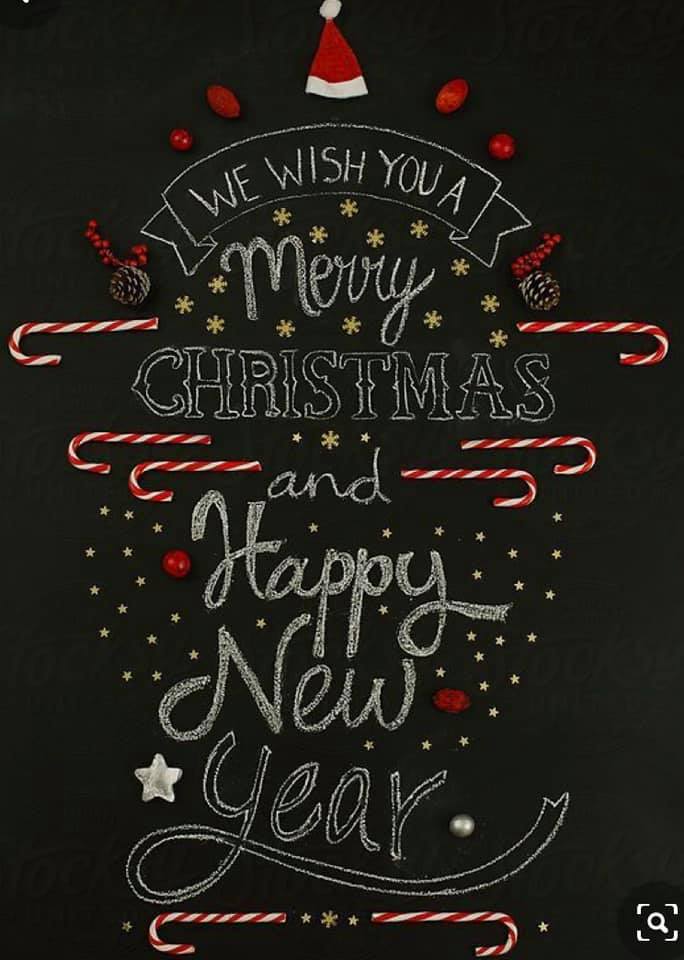 WE WISH YOU A
Merry
CHRISTMAS
and
Happy
New
year